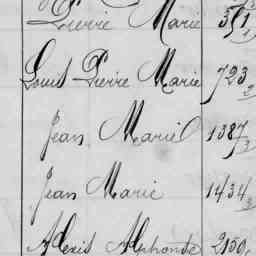 Pierre Marie 351
Louis Pierre Marie 723
Jean Marie 1387
Jean Marie 1434
Alexis Alphonse 2150